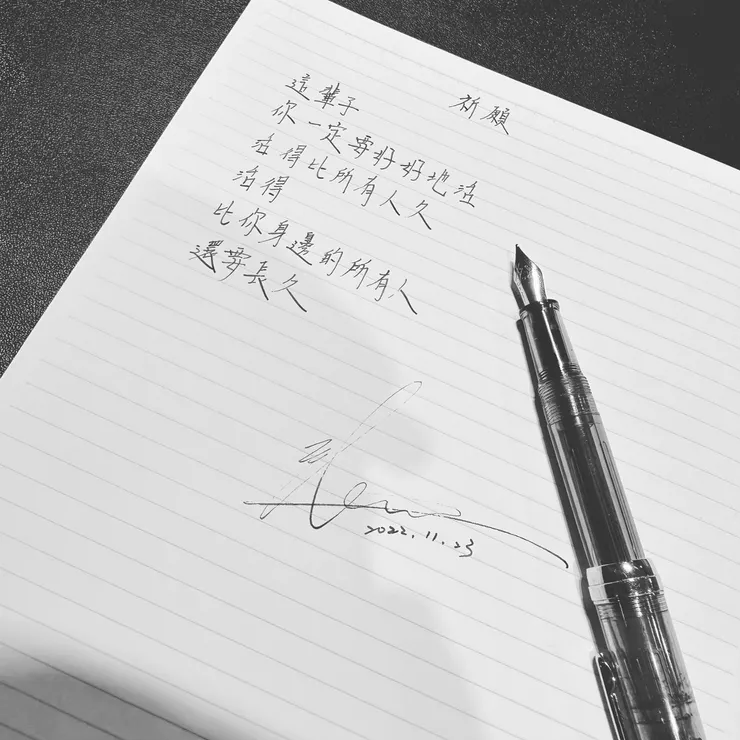 祈願
這輩子
你一定要好好地活
活得比所有人久
活得
比你身邊的所有人
還要長久
2022.11.23